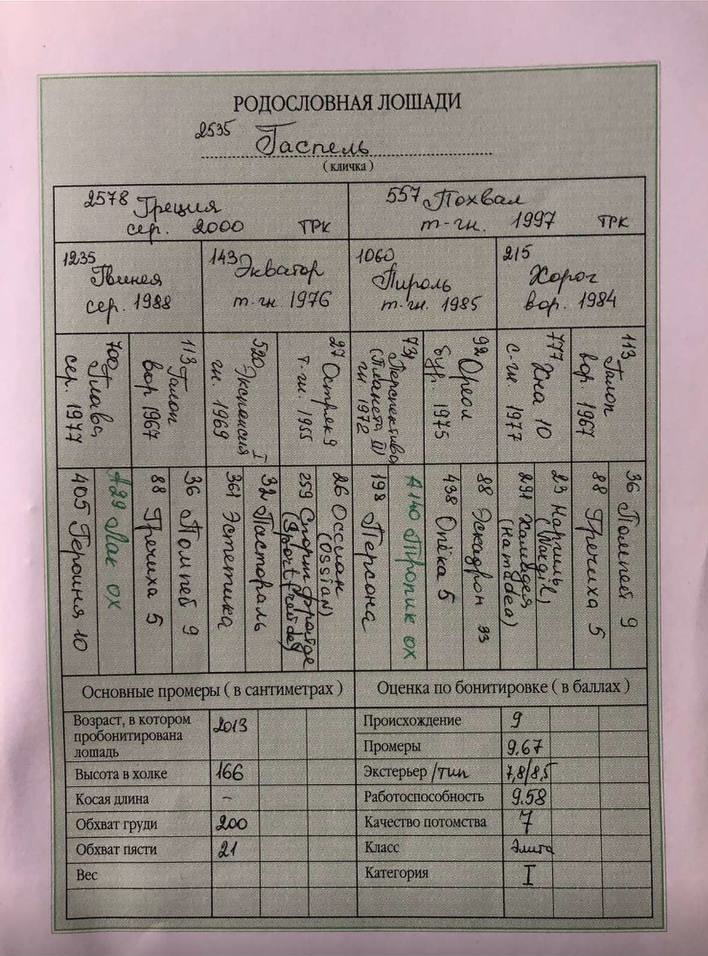 РОДОСЛОВНАЯ ЛОШАДИ
2535 Гаспель
( кличка )
2578 Греция
сер. 2000 ТРК
557 Похвал
т-гн. 1997 ТРК
1235
Гвинея
сер. 1988
143 Экватор
т.гн. 1976
1060
Пироль
т.гн. 1985
215
Хорог
вор. 1984
700 Глава
сер. 1977
113 Галоп
вор 1967
520 Экспансия I
гн. 1969
27 Остряк 9
т-гн. 1955
731 Перспектива
(Планета III)
гн 1972
92 Ореол
бур. 1975
777 Хна 10
с-гн 1977
113 Галоп
вор. 1967
405 Героиня 10
А29 Лак ох
88 Гречиха 5
36 Помпей 9
361 Эстетика
32 Пастораль
259 Спорт
26 Оссиан
(OSSIAN)
198 Персона
А140 Тропик ох
438 Опёка 5
88 Эскадрон 33
291 Хамадея
(Hamadea)
23 Наргиль
(Nargil)
88 Гречиха 5
36 Помпей 9
Основные промеры ( в сантиметрах )
Возраст, в котором пробонитирована лошадь 2013
Высота в холке 166
Косая длина –
Обхват груди 200
Обхват пясти 21
Вес
Оценка по бонитировке ( в баллах )
Происхождение 9
Промеры 9,67
Экстерьер /тип 7,8/8,5
Работоспособность 9.58
Качество потомства 7
Класс элита
Категория I